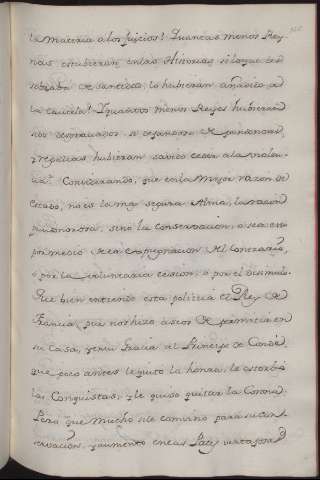 la materia a los juicios! Quantas menos Rey-
nas estubieran en las Historias si lo que les
sobraba de sentidos, lo hubieran añadido a
la cautela! Y quantos menos Reyes hubieran
sido despreciados si dejandose de pundonores,
y repulsas hubieran sabido ceder a la violen-
cia. Considerando, que en la mejor razon de
Estado, no es la mas segura Alma, la razon
pundonorosa, sino la conservacion, o sea esta
por medio de la expugnacion del contrario,
o por la voluntaria cession, o por el disimulo.
Que bien entiende esta politica el Rey de
Francia, pues no hizo ascos de permitir en
su Casa, y en su Gracia al Principe de Condé,
que poco antes le quitó la honra, le estorbó
las Conquistas, y le quiso quitar la Corona.
Pero que mucho si le camino para su con-
servacion, y aumento en las Pazes ventajosas